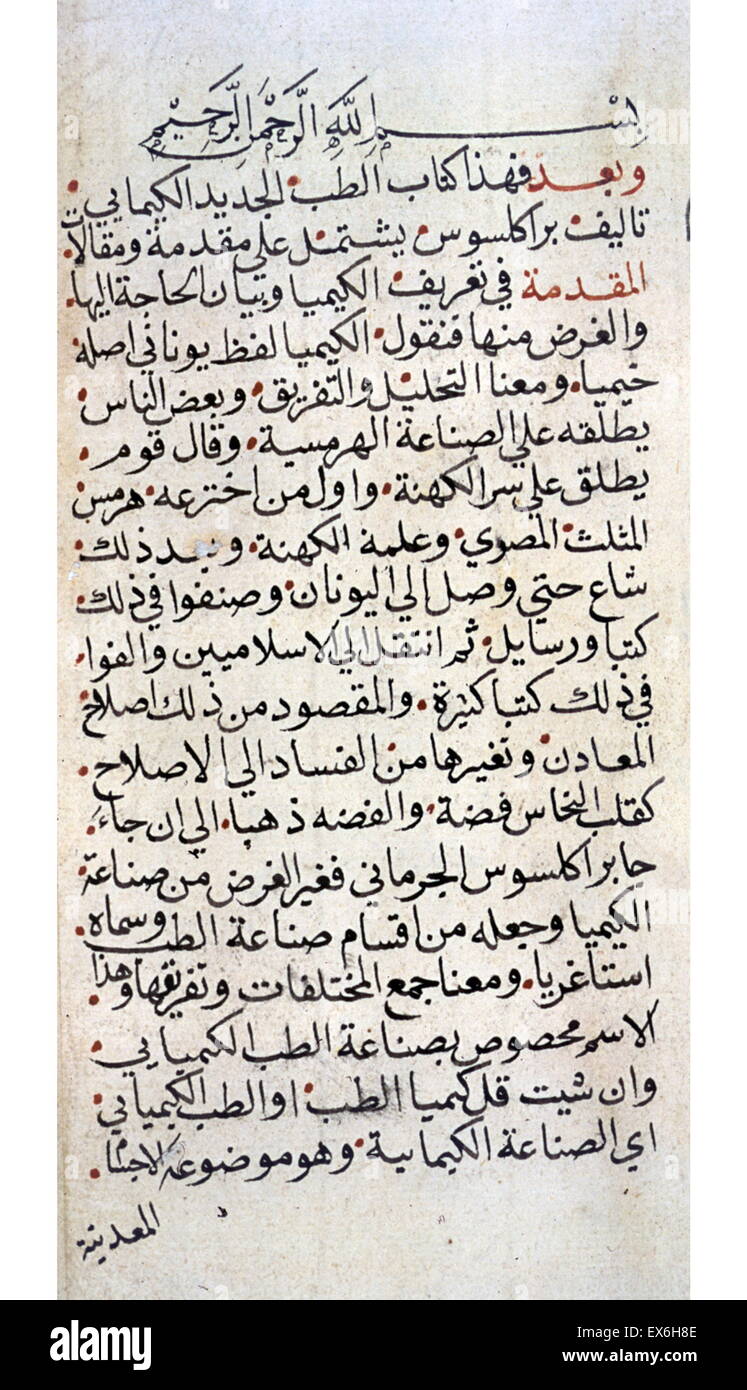 بِسْمِ اللّٰهِ الرَّحْمٰنِ الرَّحِيْمِ
وبعد فهذا كتاب الطب الجديد الكيميايي
تاليف براكلسوس يشتمل علي مقدمة ومقالات
المقدمة في تعريف الكيميا وبيان الحاجة اليها
والغرض منها فنقول الكيميا لفظ يوناني اصله
خيميا ومعنا التحليل والتفريق وبعض الناس
يطلقه علي الصناعة الهرمسية وقال قوم
يطلق علي سر الكهنة واول من اخترعه هرمس
المثلث المصري وعلمه الكهنة وبعد ذلك
شاع حتي وصل الي اليونان وصنفوا في ذلك
كتبا ورسايل ثم انتقل الي الاسلاميين والفوا
في ذلك كتبا كثيرة والمقصود من ذلك اصلاح
المعادن وتغيرها من الفساد الي الاصلاح
كقلب النحاس فضة والفضه ذهبا الي ان جاء
حا براكلسوس الجرماني فغير الغرض من صناعة
الكيميا وجعله من اقسام صناعة الطب وسماه
استاغريا ومعنا جمع المختلفات وتفريقها وهذا
الاسم مخصوص بصناعة الطب الكيميايي
وان شيت قل كيميا الطب او الطب الكيميايي
اي الصناعة الكيمايية وهو موضوعه
المعدنية
alamy
Image ID: EX6H8E
www.alamy.com